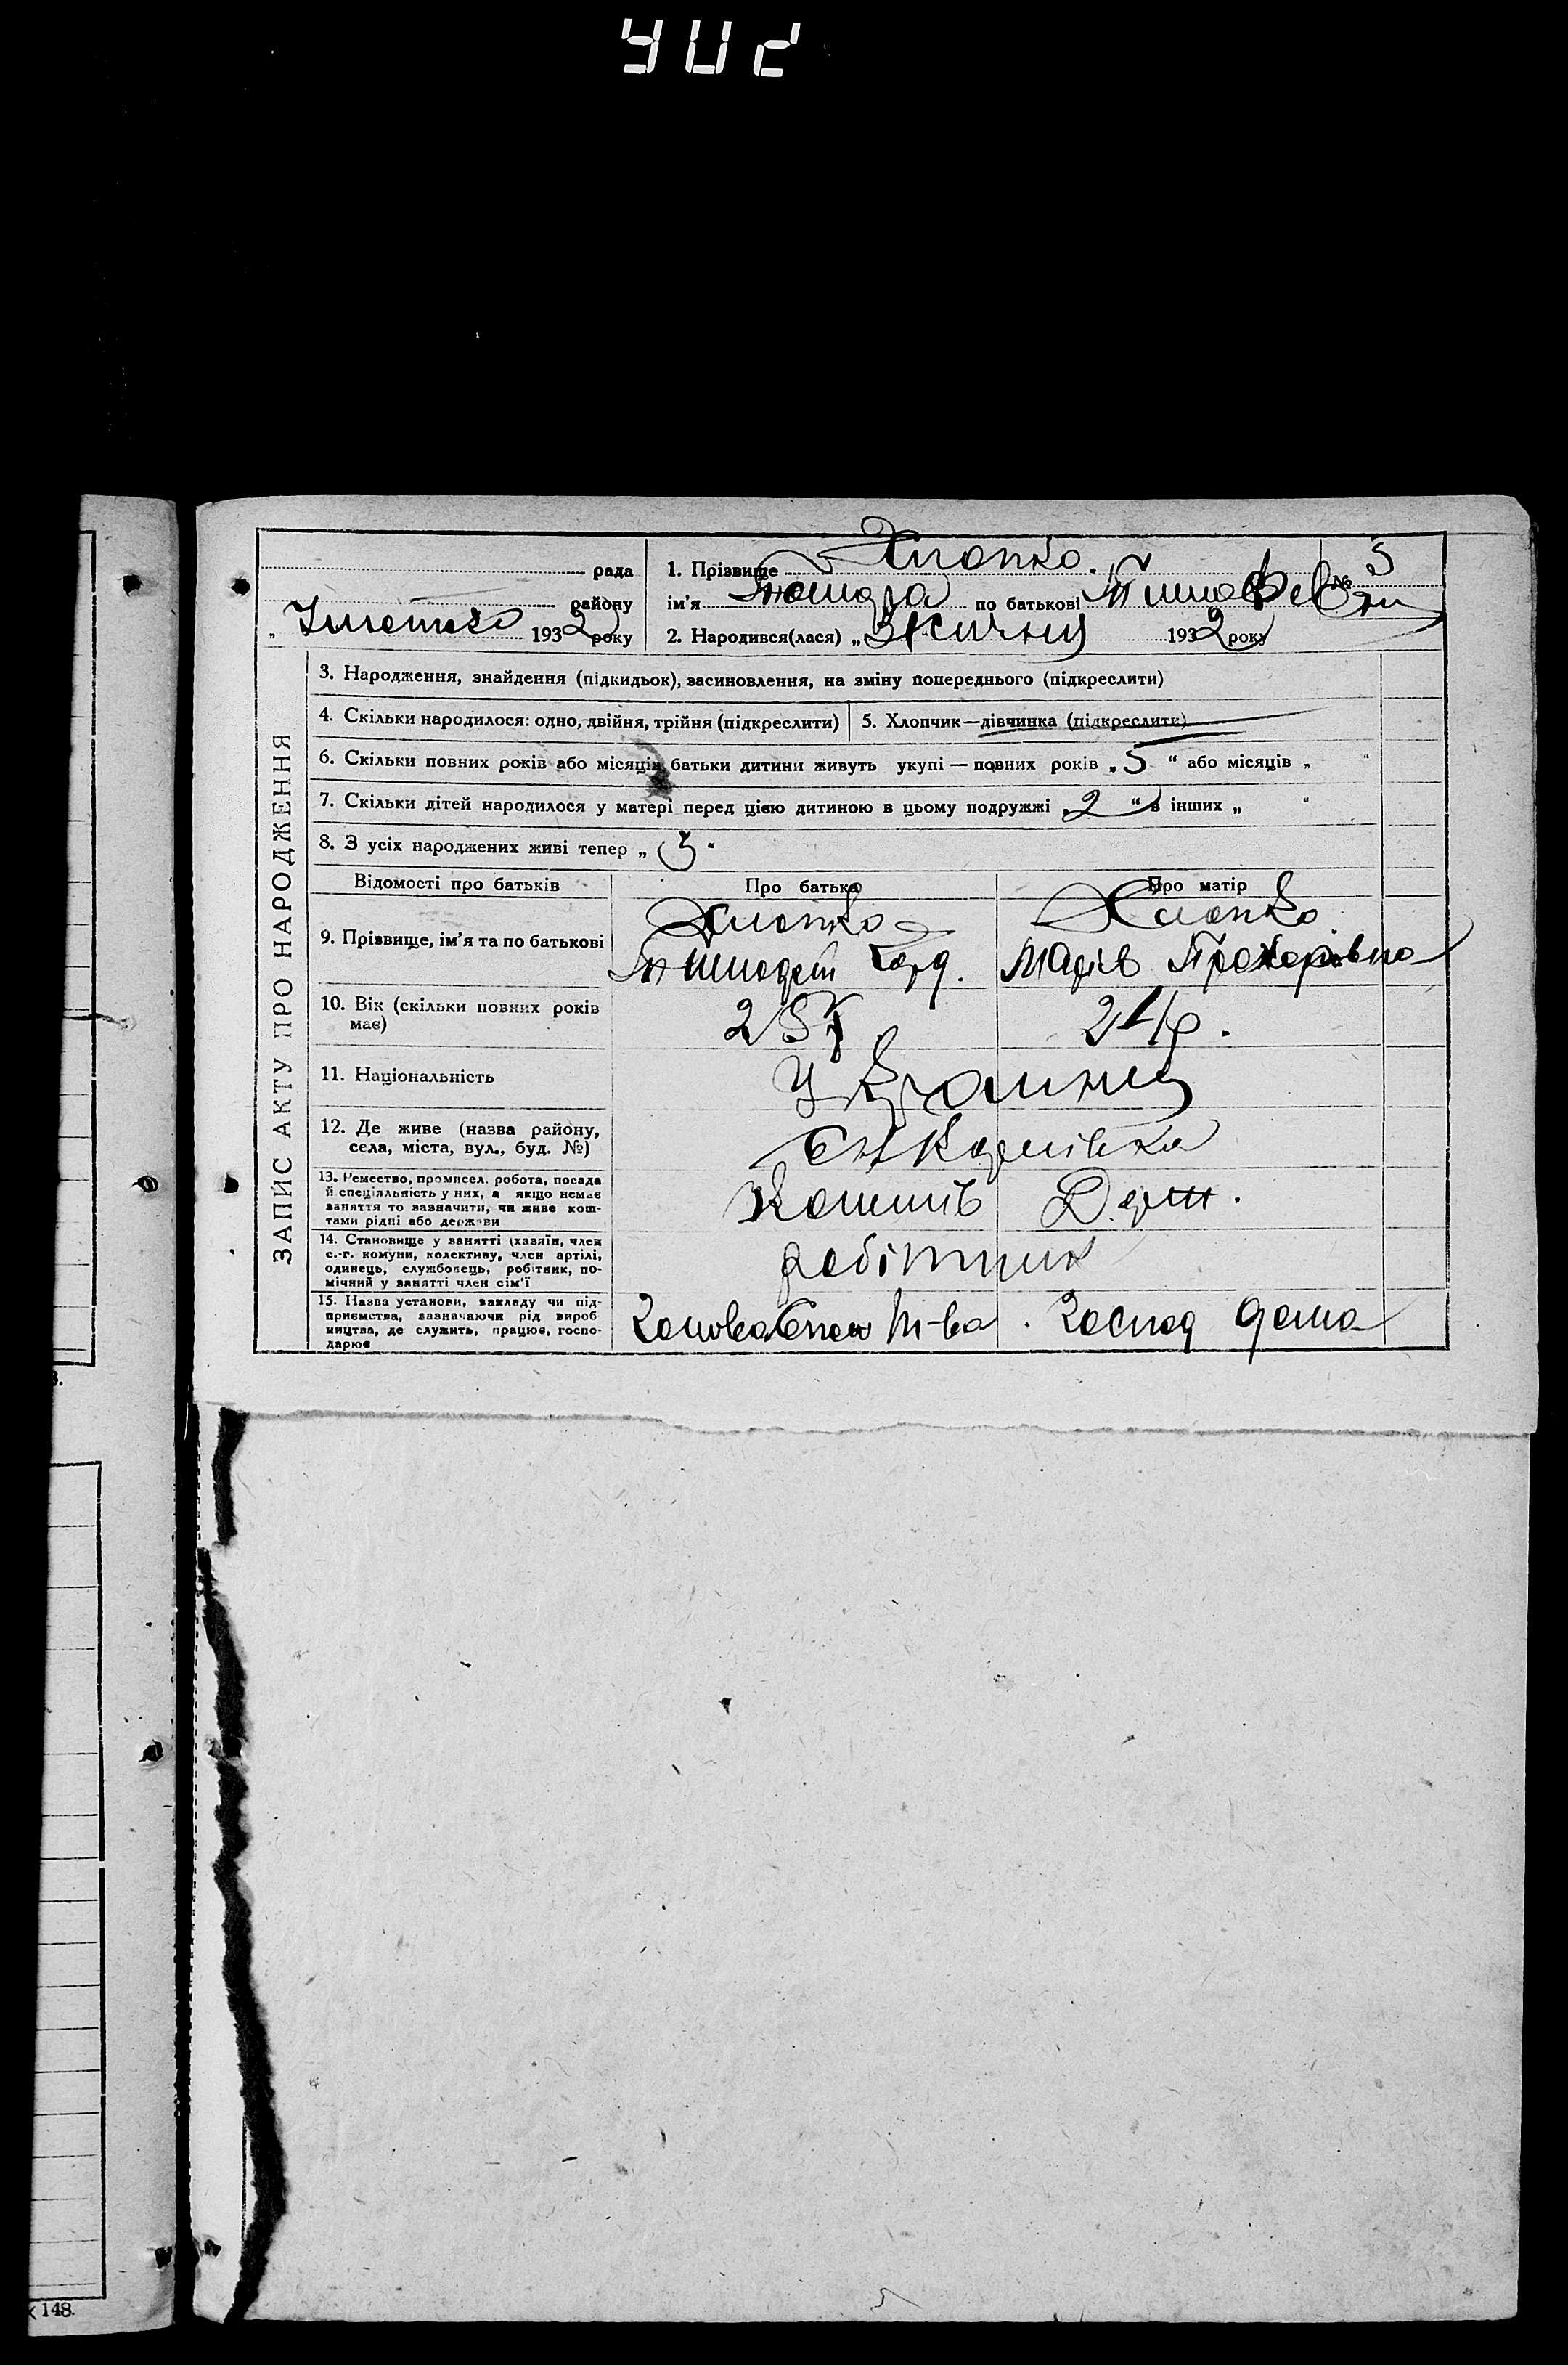 рада
району
"3 лютого 1932 року
1. Прізвище Хлопко. № 5
ім'я Тамара по батькові Тимофеевни
2. Народився(лася) „31 січня 1932 року
ЗАПИС АКТУ ПРО НАРОДЖЕННЯ
3. Народження, знайдення (підкидьок), засиновлення, на зміну попереднього (підкреслити)
4. Скільки народилося: одно, двійня, трійня (підкреслити)
5. Хлопчик—дівчинка (підкреслити)
6. Скільки повних років або місяців батьки дитини живуть укупі — повних років „5 “ або місяців „ “
7. Скільки дітей народилося у матері перед цією дитиною в цьому подружжі „2 “ в інших „ “
8. З усіх народжених живі тепер „ 3 "
Відомості про батьків Про батька Про матір
9. Прізвище, ім'я та по батькові
Хлопко Хлопко
Марія Прохорівна
10. Вік (скільки повних років
має)
24 р.
11. Національність
Українці
12. Де живе (назва району,
села, міста, вул., буд. №)
13. Ремество, промисел, робота, посада
й спеціяльність у них, а якщо немає
заняття то зазначити, чи живе кош-
тами рідні або держави
14. Становище у занятті (хазяїн, член
с.-г. комуни, колективу, член артілі,
одинець, службовець, робітник, по-
мічний у занятті член сім'ї
робітник
15. Назва установи, закладу чи під-
приємства, зазначаючи рід вироб-
ництва, де служить, працює, госпо-
дарює
т-ва. Господ дома
148.